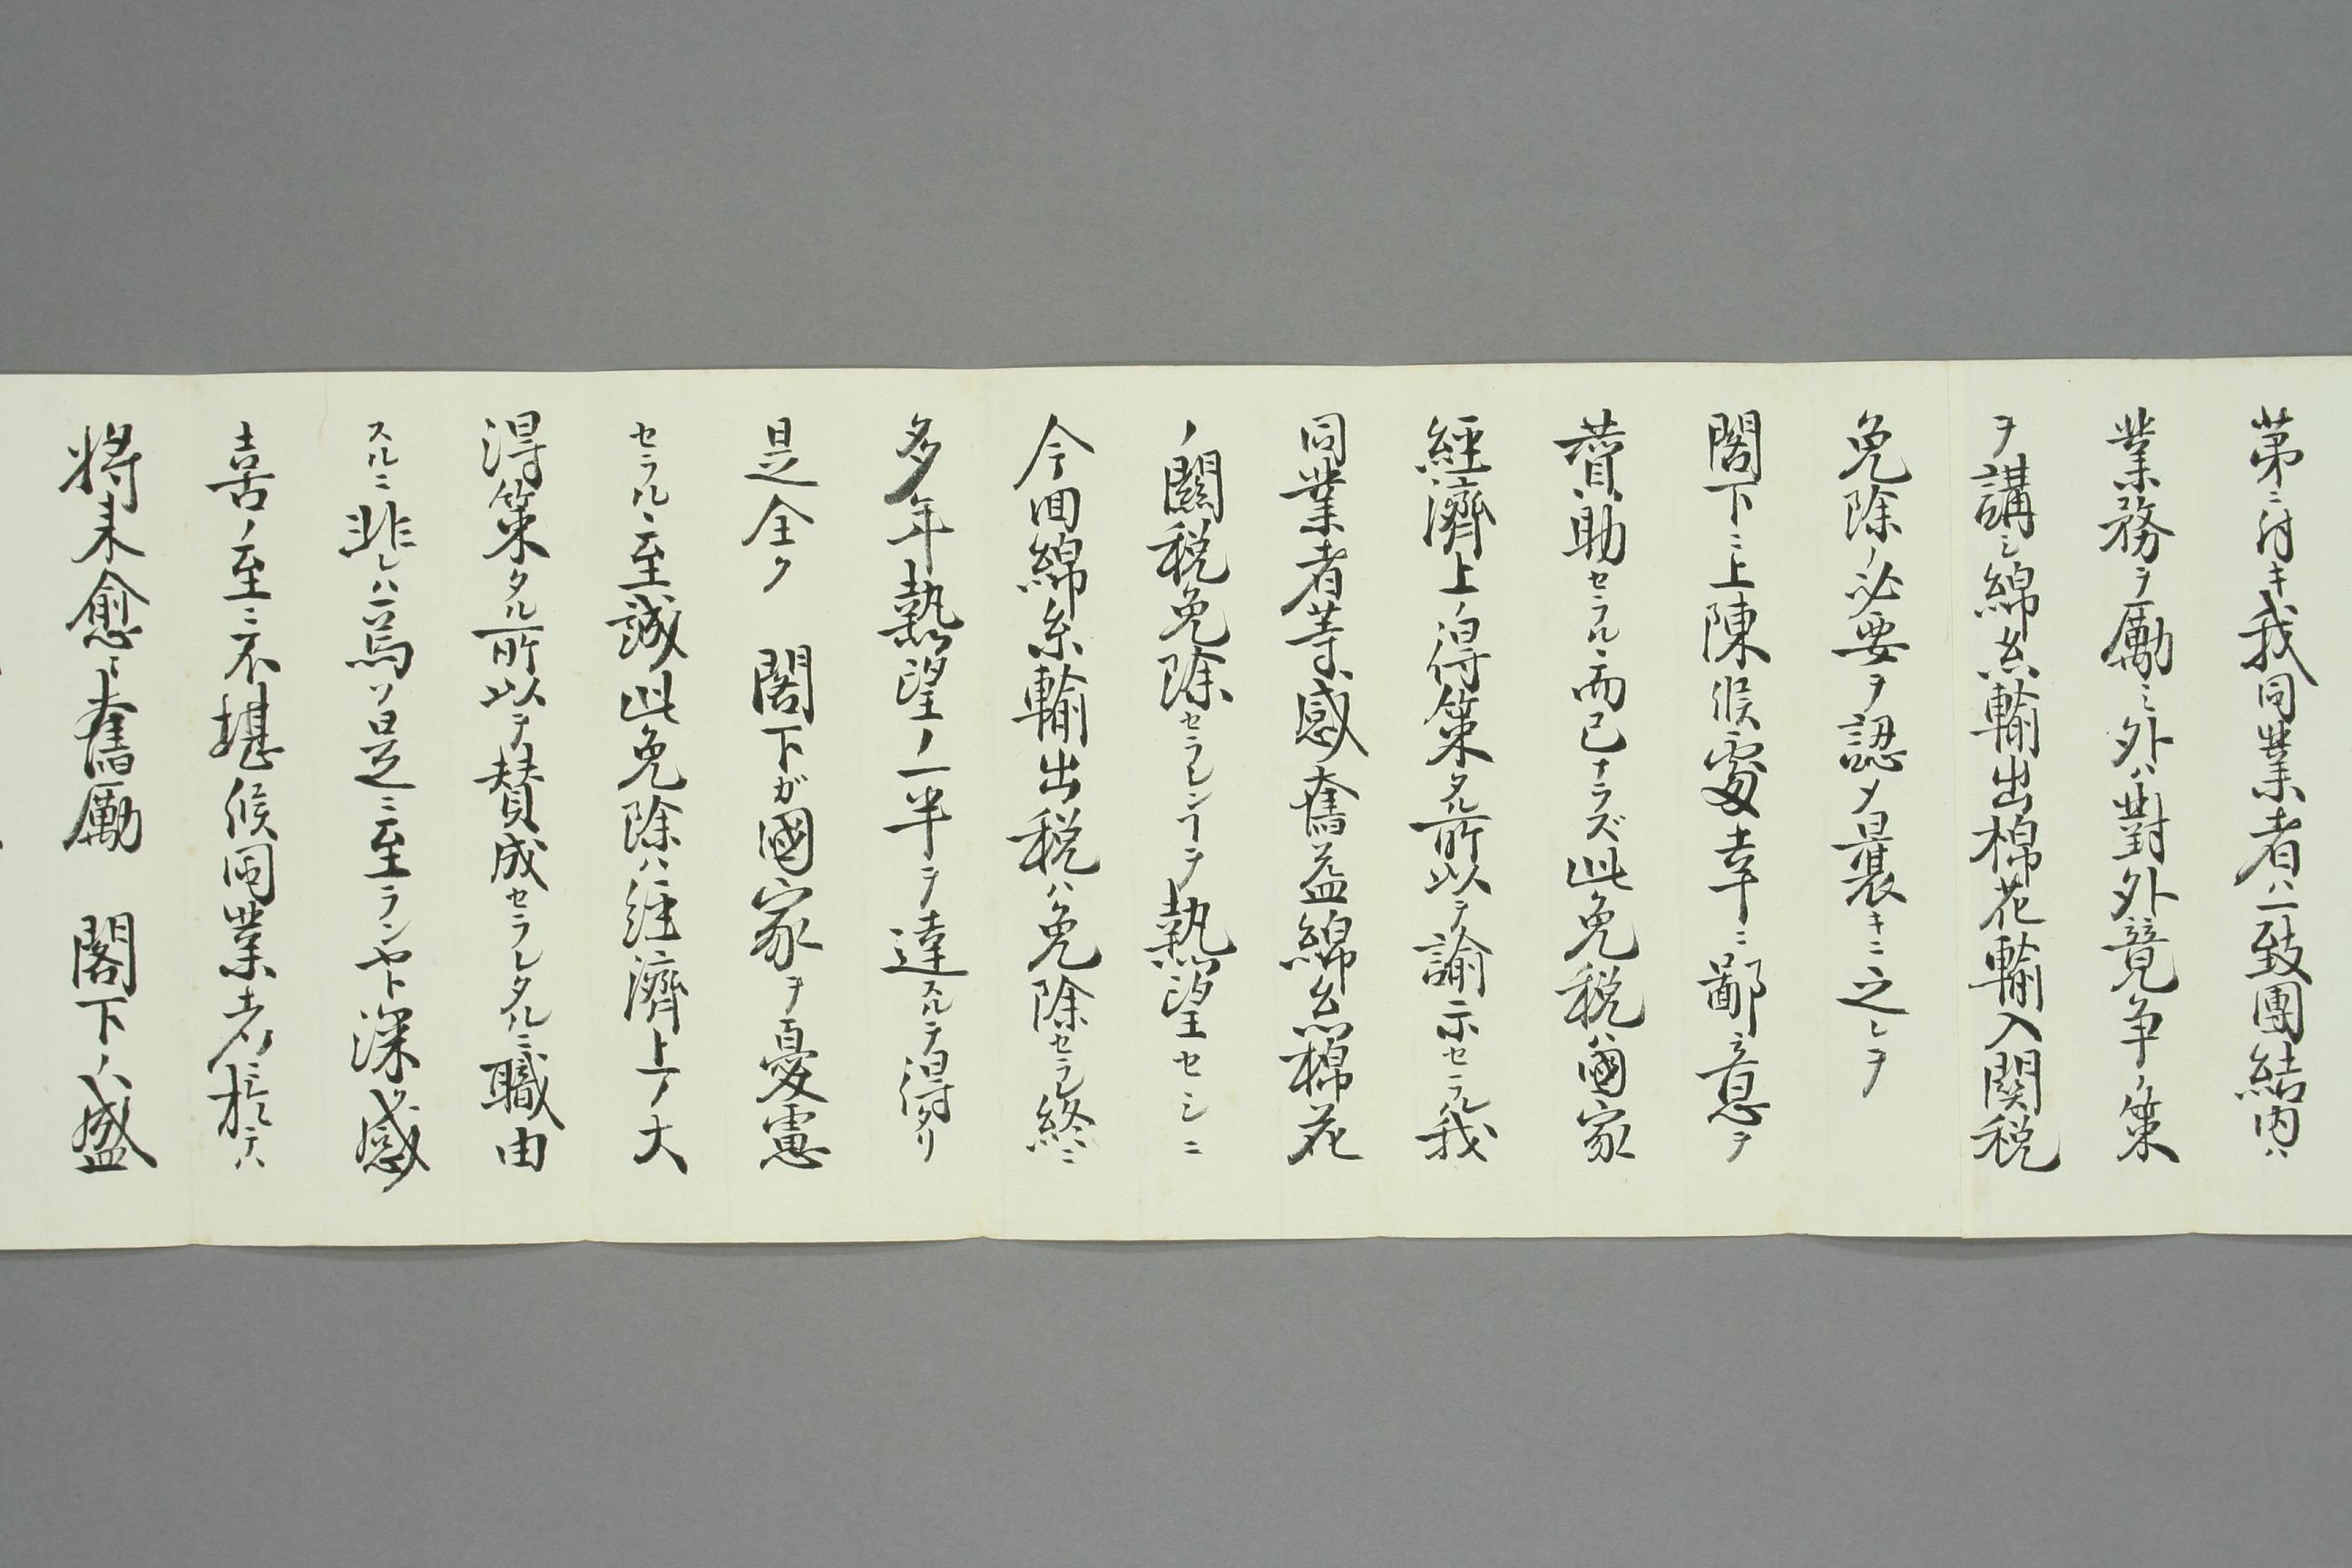 第ニ付キ我同業者ハ一致團結内ハ
業務ヲ勵ミ外ハ對外競争ノ策
ヲ講シ綿糸輸出棉花輸入関税
免除ノ必要ヲ認メ曩キニ之レヲ
閣下ニ上陳候處幸ニ鄙意ヲ
賛助セラルヽ而已ナラズ此免税ハ國家
經濟上ノ得策タル所以ヲ諭示セラル我
同業者等感奮益綿糸棉花
ノ關税免除セラレンヿヲ熱望セシニ
今回綿糸輸出税ハ免除セラレ終ニ
多年熱望ノ一半ヲ達スルヲ得タリ
是全ク 閣下ガ國家ヲ憂慮
セラルヽ至誠此免除ハ経濟上ノ大
得策タル所以ヲ賛成セラレタルニ職由
スルニ非レハ焉ソ是ニ至ランヤト深ク感
喜ノ至ニ不堪候同業者ニ於テハ
將来愈々奮勵 閣下ノ盛